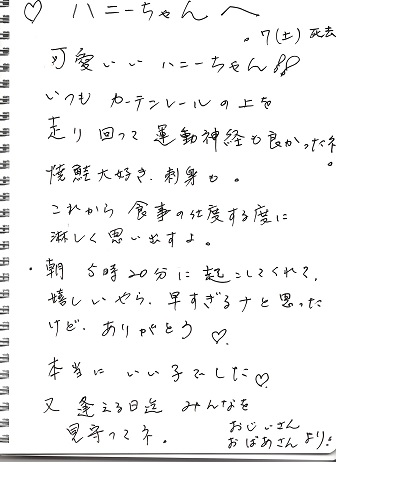 ♡ ハニーちゃん へ
。7(土) 死去
可愛いい ハニーちゃん!!
いつも カーテンレールの上を
走り回って 運動神経も良かったネ。
焼鮭大好き、刺身も。
これから 食事の仕度する度に
淋しく思い出すよ。
・朝 5時20分に起こしてくれて、
嬉しいやら、早すぎるナと思った
けど、ありがとう ♡
本当に いい子でした♡
又 逢える日迄 みんなを
見守ってネ。
おじいさん
おばあさん より!